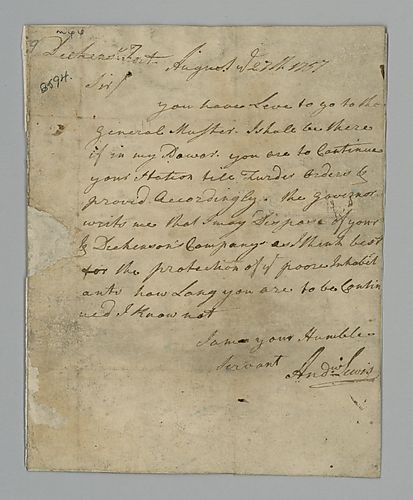 Dickensn Fort August ye 27th 1757
B594.
Sir/
you have Leve to go to the
general Muster. I shall be there
if in my Power. you are to Continue
your Station till Furder Orders &
provid Accordingly. the governor
writs me that I may Dispose of your
& Dickenson's Company as I think best
for the protection of ye poore Inhabit
ants how Long you are to be Contin
ued I Know not
I am your Humble
Servant Andw Lewis